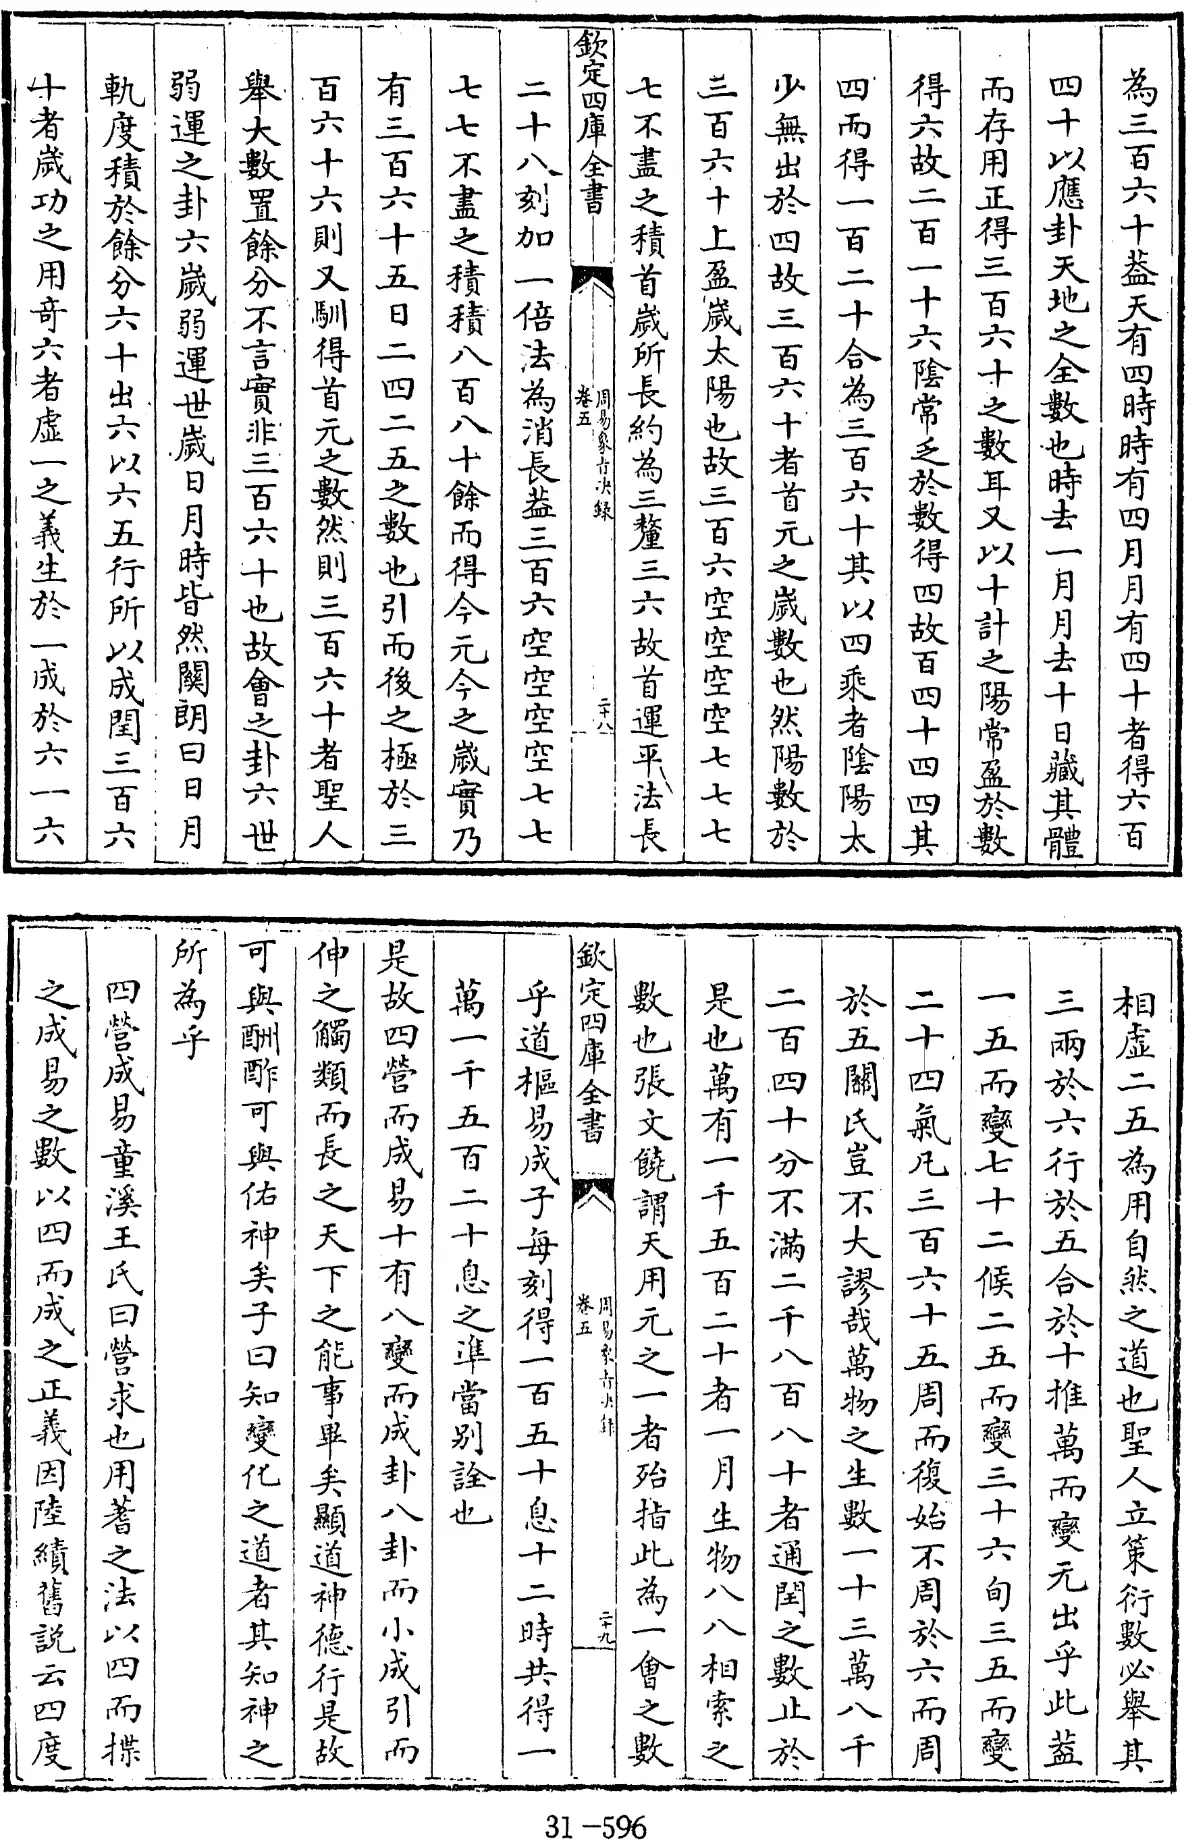 為三百六十葢天有四時時有四月月有四十者得六百
四十以應卦天地之全數也時去一月月去十日藏其體
而存用正得三百六十之數耳又以十計之陽常盈於數
得六故二百一十六陰常乏於數得四故百四十四四其
四而得一百二十合為三百六十其以四乘者陰陽太
少無出於四故三百六十者首元之歲數也然陽數於
三百六十上盈歲太陽也故三百六空空空空七七七
七不盡之積首歲所長約為三釐三六故首運平法長
欽定四庫全書
周易象旨決録
卷五
二十八
二十八刻加一倍法為消長葢三百六空空空空七七
七七不盡之積積八百八十餘而得今元今之歲實乃
有三百六十五日二四二五之數也引而後之極於三
百六十六則又馴得首元之數然則三百六十者聖人
舉大數置餘分不言實非三百六十也故會之卦六世
弱運之卦六歲弱運世歲日月時皆然關朗曰日月
軌度積於餘分六十出六以六五行所以成閏三百六
十者歲功之用竒六者虛一之義生於一成於六一六
相虛二五為用自然之道也聖人立策衍數必舉其
三兩於六行於五合於十推萬而變无出乎此葢
一五而變七十二候二五而變三十六旬三五而變
二十四氣凡三百六十五周而復始不周於六而周
於五關氏豈不大謬哉萬物之生數一十三萬八千
二百四十分不滿二千八百八十者通閏之數止於
是也萬有一千五百二十者一月生物八八相索之
數也張文饒謂天用元之一者殆指此為一會之數
欽定四庫全書
周易象旨決録
卷五
二十九
乎道樞易成子每刻得一百五十息十二時共得一
萬一千五百二十息之準當别詮也
是故四營而成易十有八變而成卦八卦而小成引而
伸之觸類而長之天下之能事畢矣顯道神德行是故
可與酬酢可與佑神矣子曰知變化之道者其知神之
所為乎
四營成易童溪王氏曰營求也用蓍之法以四而揲
之成易之數以四而成之正義因陸績舊說云四度
31-596